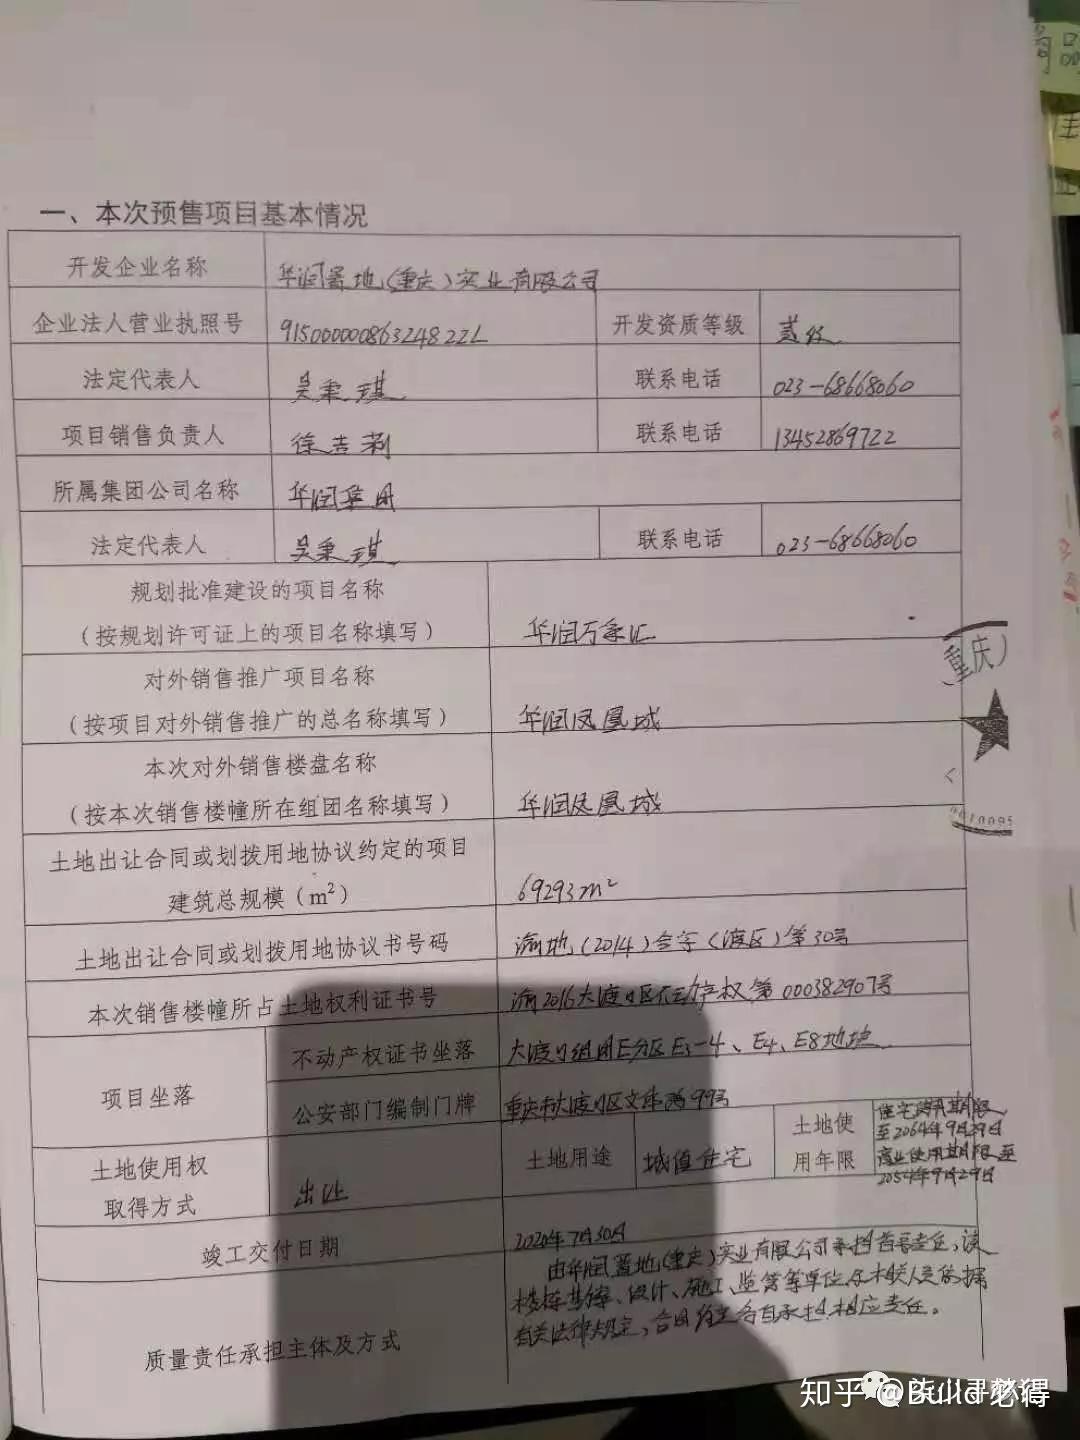 一、本次预售项目基本情况
开发企业名称 华润置地(重庆)实业有限公司
企业法人营业执照号 91500000086324822L 开发资质等级 贰级
法定代表人 吴秉琪 联系电话 023-68668060
项目销售负责人 徐吉莉 联系电话 13452869722
所属集团公司名称 华润集团
法定代表人 吴秉琪 联系电话 023-68668060
规划批准建设的项目名称
（按规划许可证上的项目名称填写） 华润万象汇
对外销售推广项目名称
（按项目对外销售推广的总名称填写） 华润凤凰城
本次对外销售楼盘名称
（按本次销售楼幢所在组团名称填写） 华润凤凰城
土地出让合同或划拨用地协议约定的项目
建筑总规模（m²） 69293m²
土地出让合同或划拨用地协议书号码 渝地(2014)合字(渡区)第30号
本次销售楼幢所占土地权利证书号 渝2016大渡口区不动产权第000382907号
项目坐落 不动产权证书坐落 大渡口组团E分区E3-4、E4、E8地块
公安部门编制门牌 重庆市大渡口区文体路99号
土地使用权
取得方式 出让 土地用途 城镇住宅 土地使
用年限 住宅使用期限
至2064年9月29日
商业使用期限至
2054年9月29日
竣工交付日期 2020年7月30日
质量责任承担主体及方式 由华润置地(重庆)实业有限公司承担首要责任,该
楼栋勘察、设计、施工、监管等单位及相关人员依据
有关法律规定,合同约定各自承担相应责任。
重庆）
0010095
知乎 @Build 必得